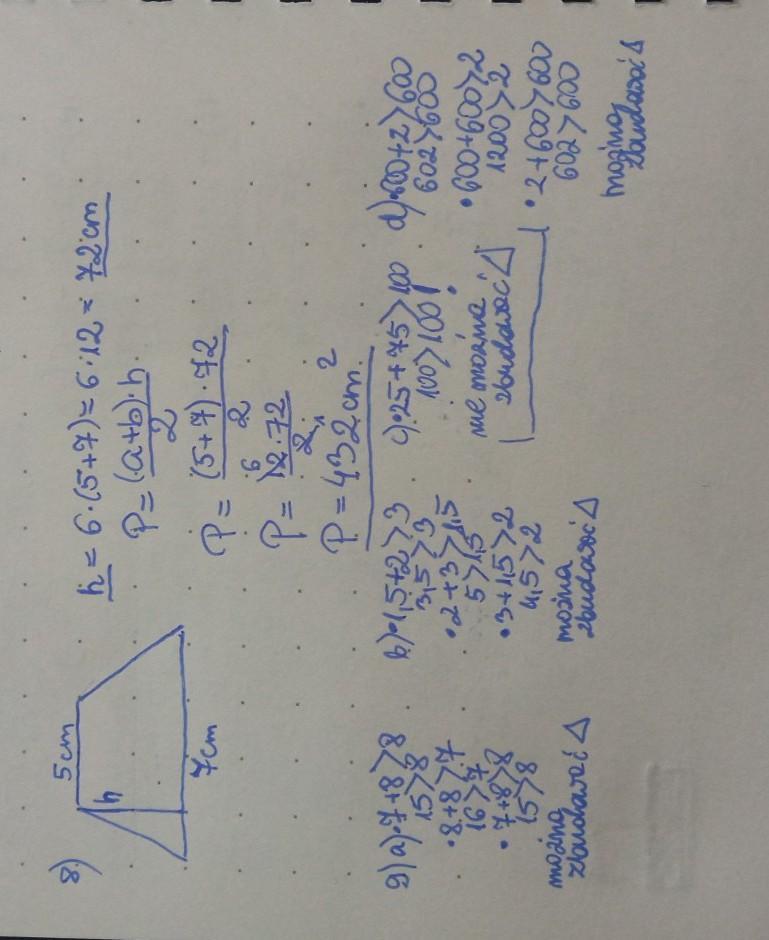 8)
5cm
h
7cm
h = 6·(5+7) = 6·12 = 72cm
P = (a+b)·h
2
P = (5+7)·72
2
6
P = 12·72
2
P = 432cm²
9) a)·7+8>8
15>8
·8+8>7
16>7
·7+8>8
15>8
można
zbudować △
b)·1,5+2>3
3,5>3
·2+3>1,5
5>1,5
·3+1,5>2
4,5>2
można
zbudować △
c)·25+75>100
100>100
nie można
zbudować △
d)·600+2>600
602>600
·600+600>2
1200>2
·2+600>600
602>600
można
zbudować △